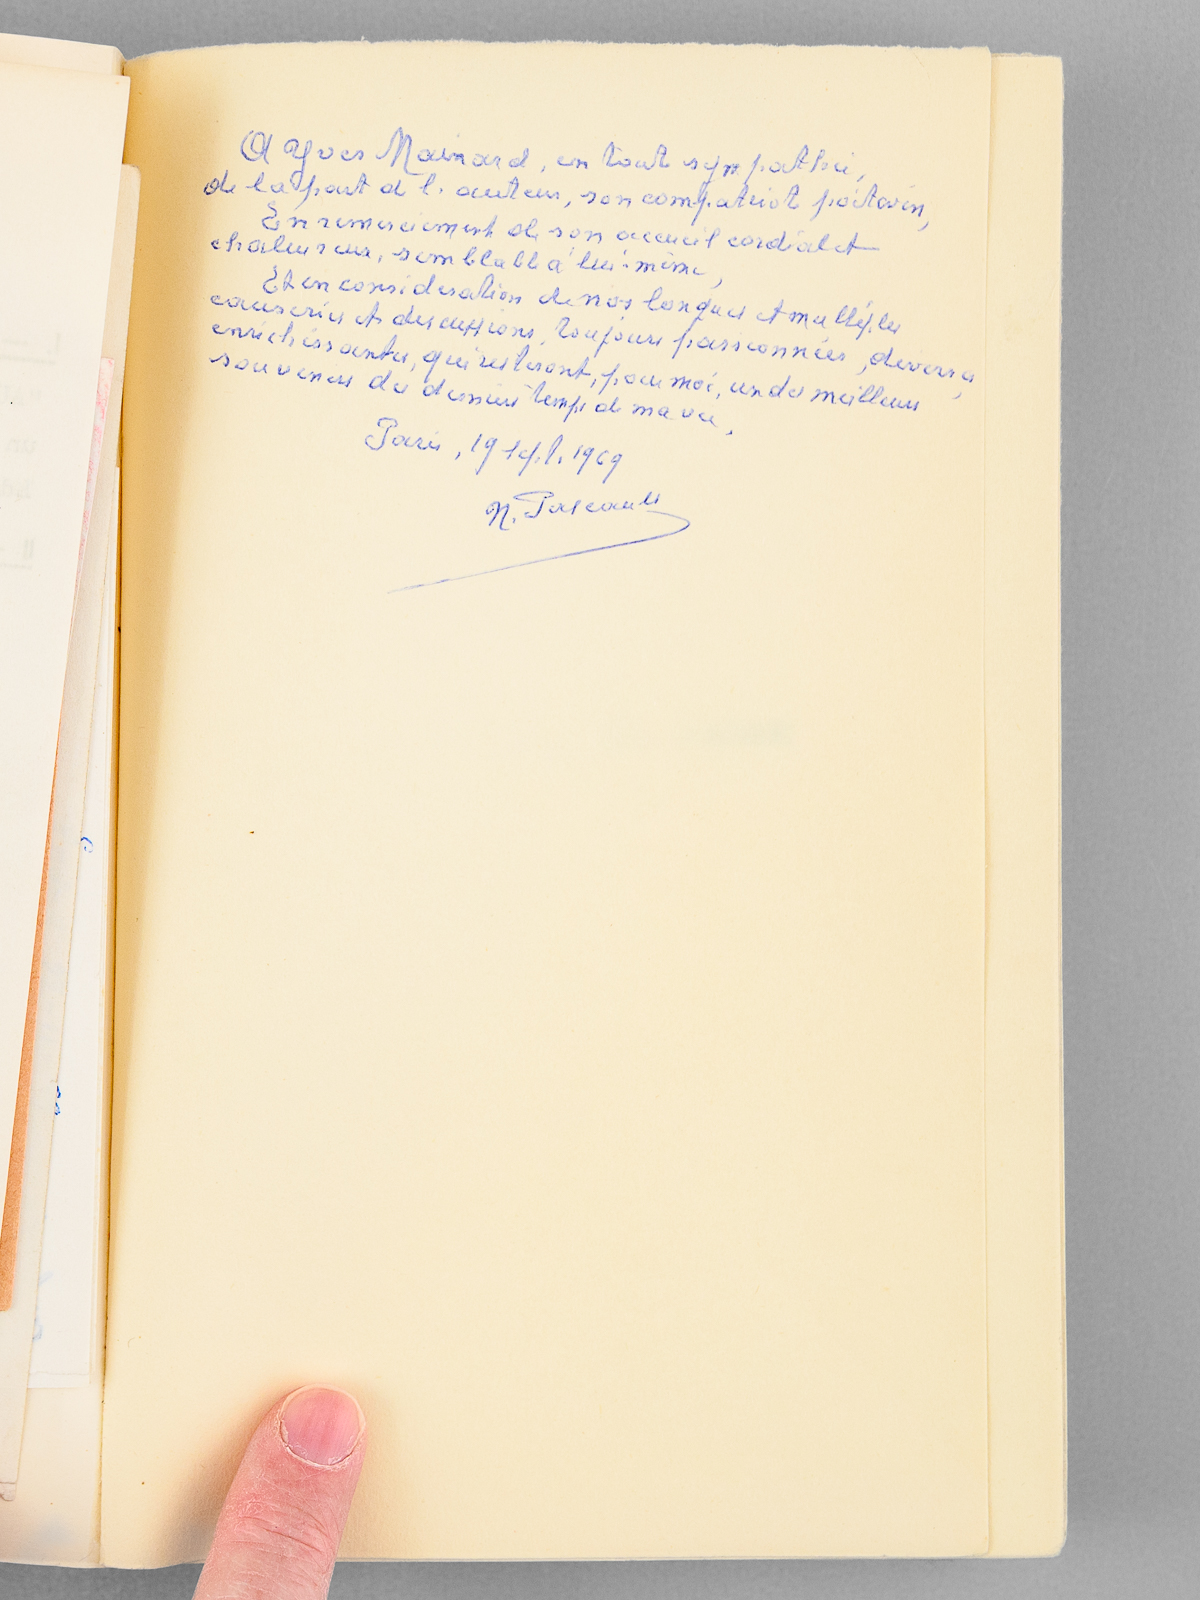 A Yves Mainard, en tout sympathie,
de la part de l'auteur, son compatriote poitevin,
En remerciement de son accueil cordial et
chaleureux, semblable à lui-même,
Et en considération de nos longues et multiples
causeries et discussions, toujours passionnées, divers
enrichissantes, qui resteront, pour moi, un des meilleurs
souvenirs du dernier temps de ma vie,
Paris, 19 sept. 1969